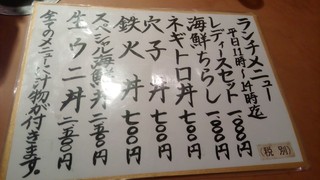 ランチメニュー
平日11時〜14時迄
レディースセット 1000円
海鮮ちらし 1000円
ネギトロ丼 700円
穴子丼 700円
鉄火丼 700円
スペシャル海鮮丼 2500円
生ウニ丼 2500円
全てのメニューに汁物が付きます。
(税別)